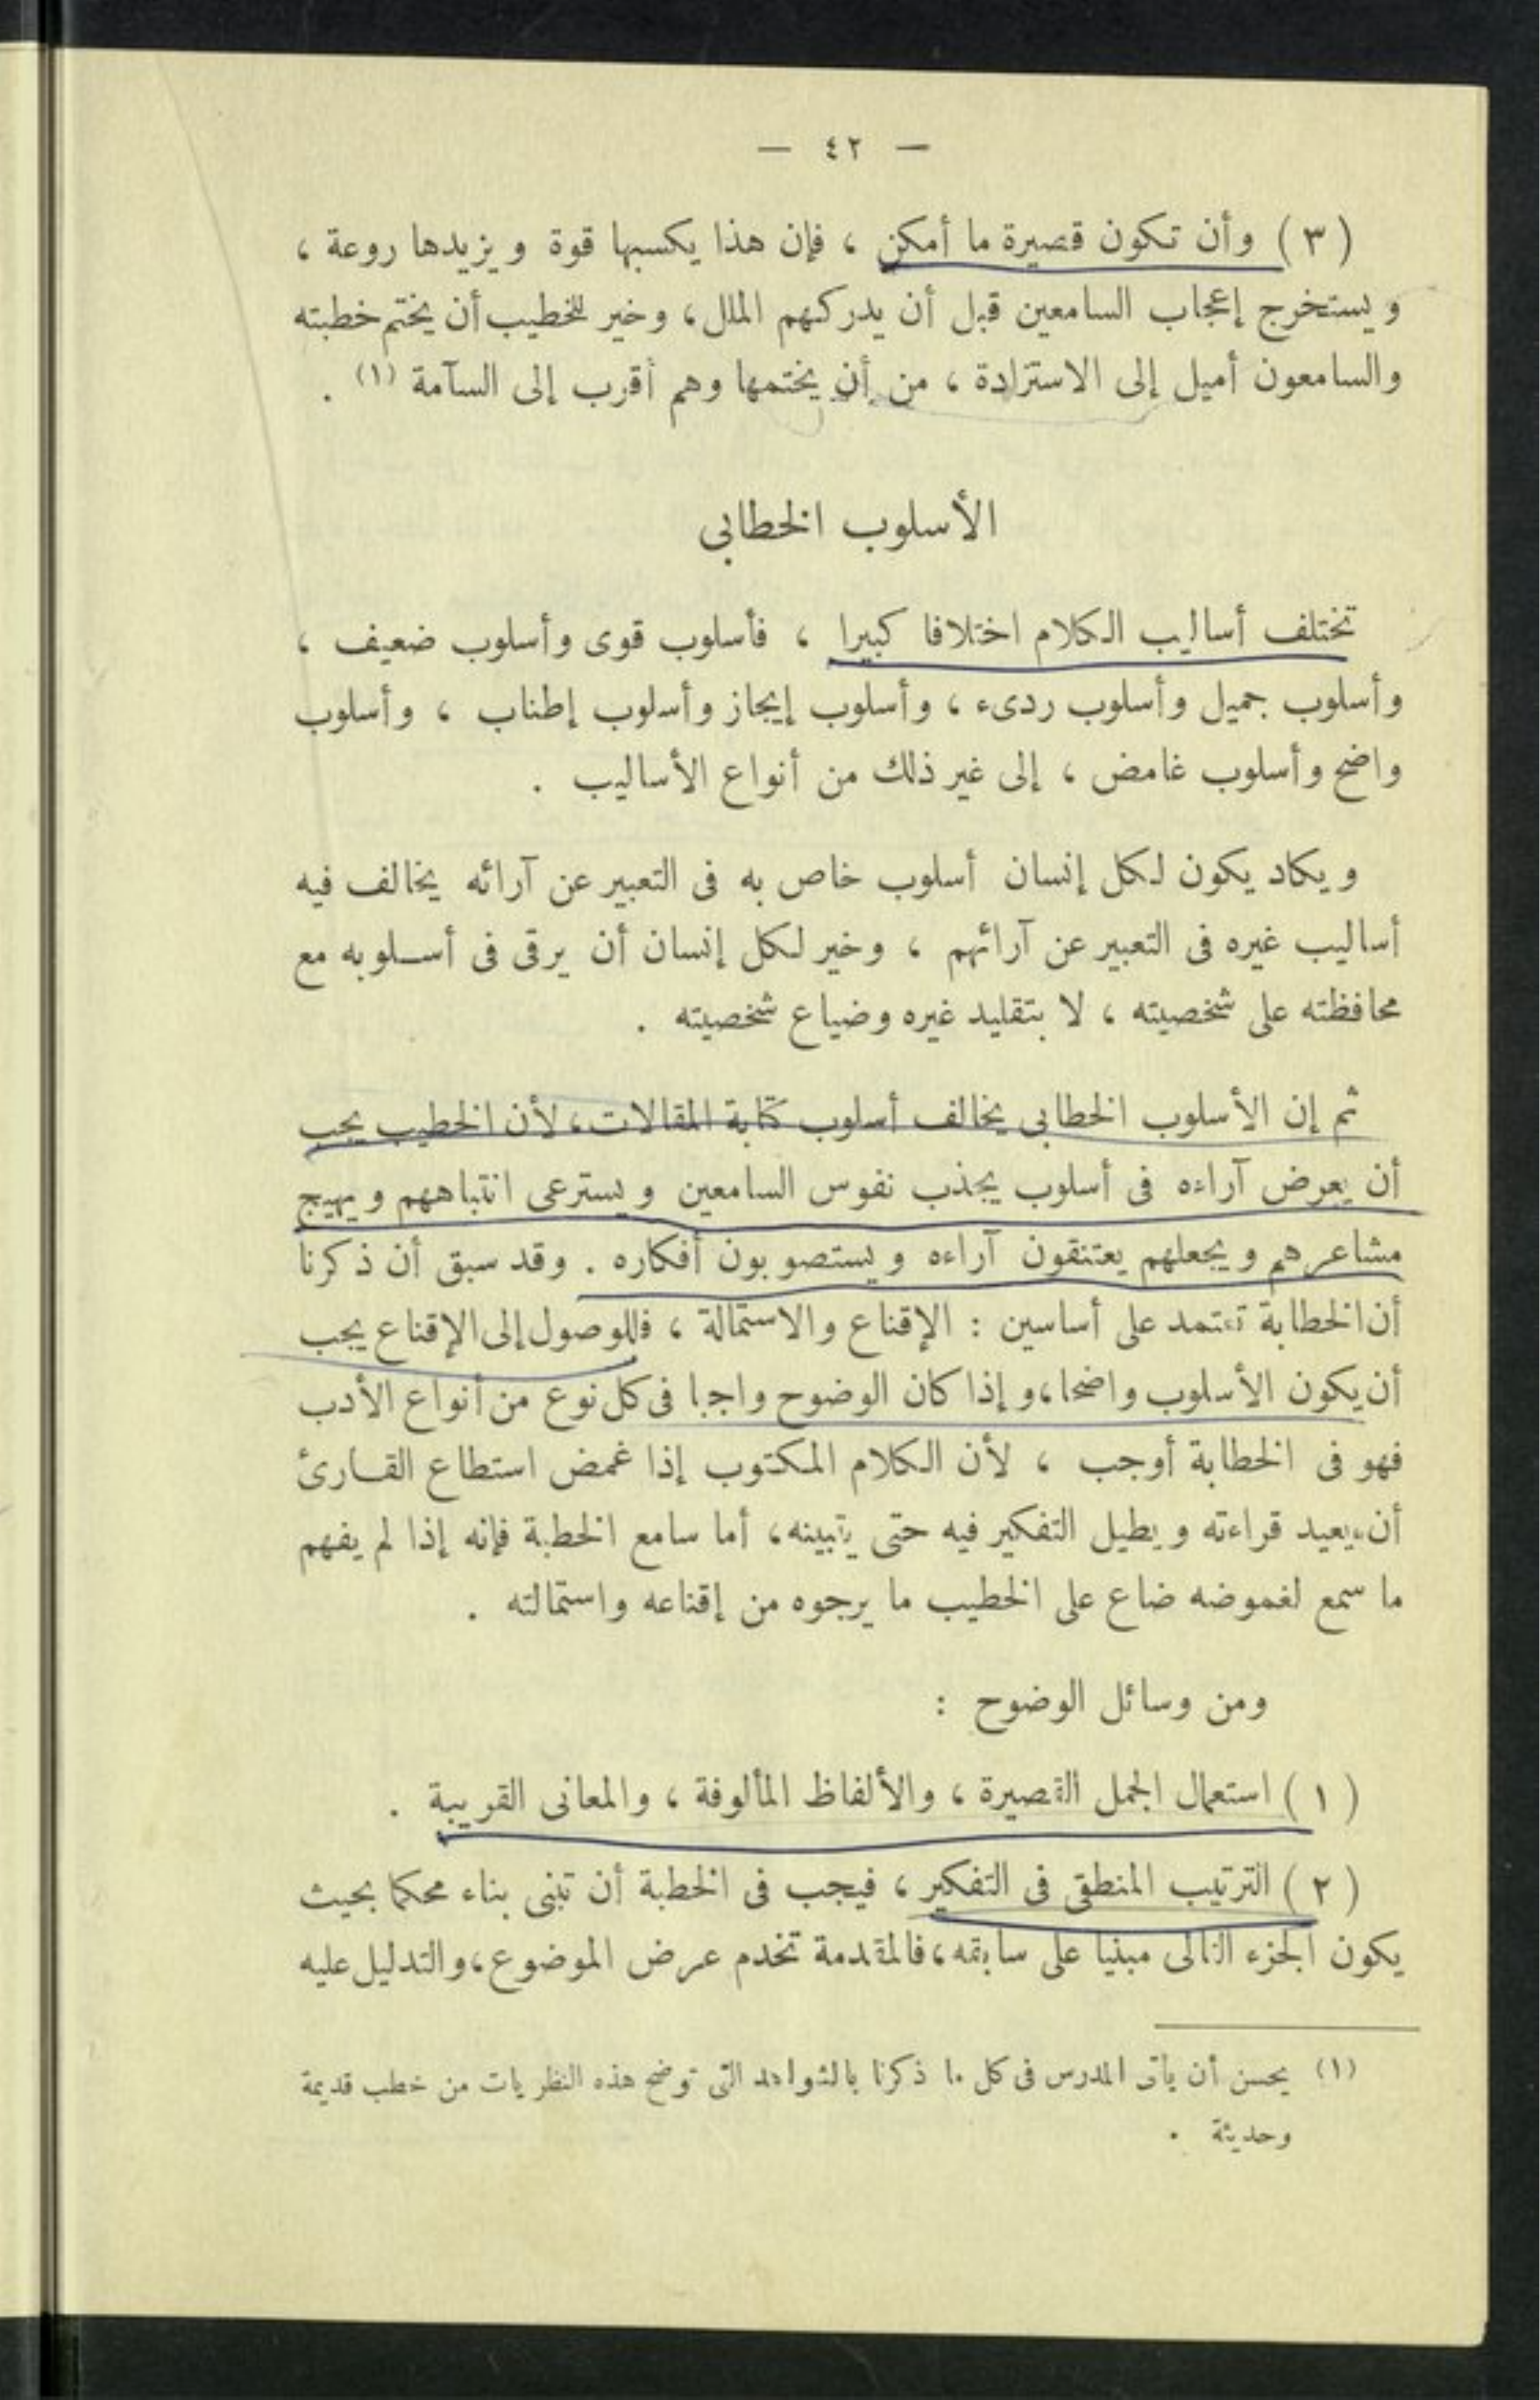 — ٤٢ —
( ٣ ) وأن تكون قصيرة ما أمكن ، فإن هذا يكسبها قوة ويزيدها روعة ،
ويستخرج إعجاب السامعين قبل أن يدركهم الملل ، وخير للخطيب أن يختم خطبته
والسامعون أميل إلى الاستزادة ، من أن يختمها وهم أقرب إلى السآمة (١) .
الأسلوب الخطابى
تختلف أساليب الكلام اختلافا كبيرا ، فأسلوب قوى وأسلوب ضعيف ،
وأسلوب جميل وأسلوب ردىء ، وأسلوب إيجاز وأسلوب إطناب ، وأسلوب
واضح وأسلوب غامض ، إلى غير ذلك من أنواع الأساليب .
ويكاد يكون لكل إنسان أسلوب خاص به فى التعبير عن آرائه يخالف فيه
أساليب غيره فى التعبير عن آرائهم ، وخير لكل إنسان أن يرقى فى أسلوبه مع
محافظته على شخصيته ، لا بتقليد غيره وضياع شخصيته .
ثم إن الأسلوب الخطابى يخالف أسلوب كتابة المقالات ، لأن الخطيب يجب
أن يعرض آراءه فى أسلوب يجذب نفوس السامعين ويسترعى انتباههم ويهيج
مشاعرهم ويجعلهم يعتنقون آراءه ويستصوبون أفكاره . وقد سبق أن ذكرنا
أن الخطابة تعتمد على أساسين : الإقناع والاستمالة ، فللوصول إلى الإقناع يجب
أن يكون الأسلوب واضحا ، وإذا كان الوضوح واجبا فى كل نوع من أنواع الأدب
فهو فى الخطابة أوجب ، لأن الكلام المكتوب إذا غمض استطاع القارئ
أن يعيد قراءته ويطيل التفكير فيه حتى يتبينه ، أما سامع الخطبة فإنه إذا لم يفهم
ما سمع لغموضه ضاع على الخطيب ما يرجوه من إقناعه واستمالته .
ومن وسائل الوضوح :
( ١ ) استعمال الجمل القصيرة ، والألفاظ المألوفة ، والمعانى القريبة .
( ٢ ) الترتيب المنطقى فى التفكير ، فيجب فى الخطبة أن تبنى بناء محكما بحيث
يكون الجزء التالى مبنيا على سابقه ، فالمقدمة تخدم عرض الموضوع ، والتدليل عليه
(١) يحسن أن يأتى المدرس فى كل ما ذكرنا بالشواهد التى توضح هذه النظريات من خطب قديمة
وحديثة .